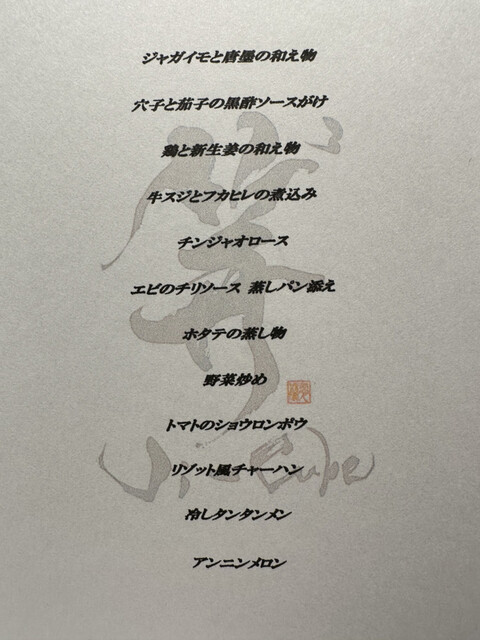 ジャガイモと唐墨の和え物
穴子と茄子の黒酢ソースがけ
鶏と新生姜の和え物
牛スジとフカヒレの煮込み
チンジャオロース
エビのチリソース 蒸しパン添え
ホタテの蒸し物
野菜炒め
トマトのショウロンポウ
リゾット風チャーハン
冷しタンタンメン
アンニンメロン